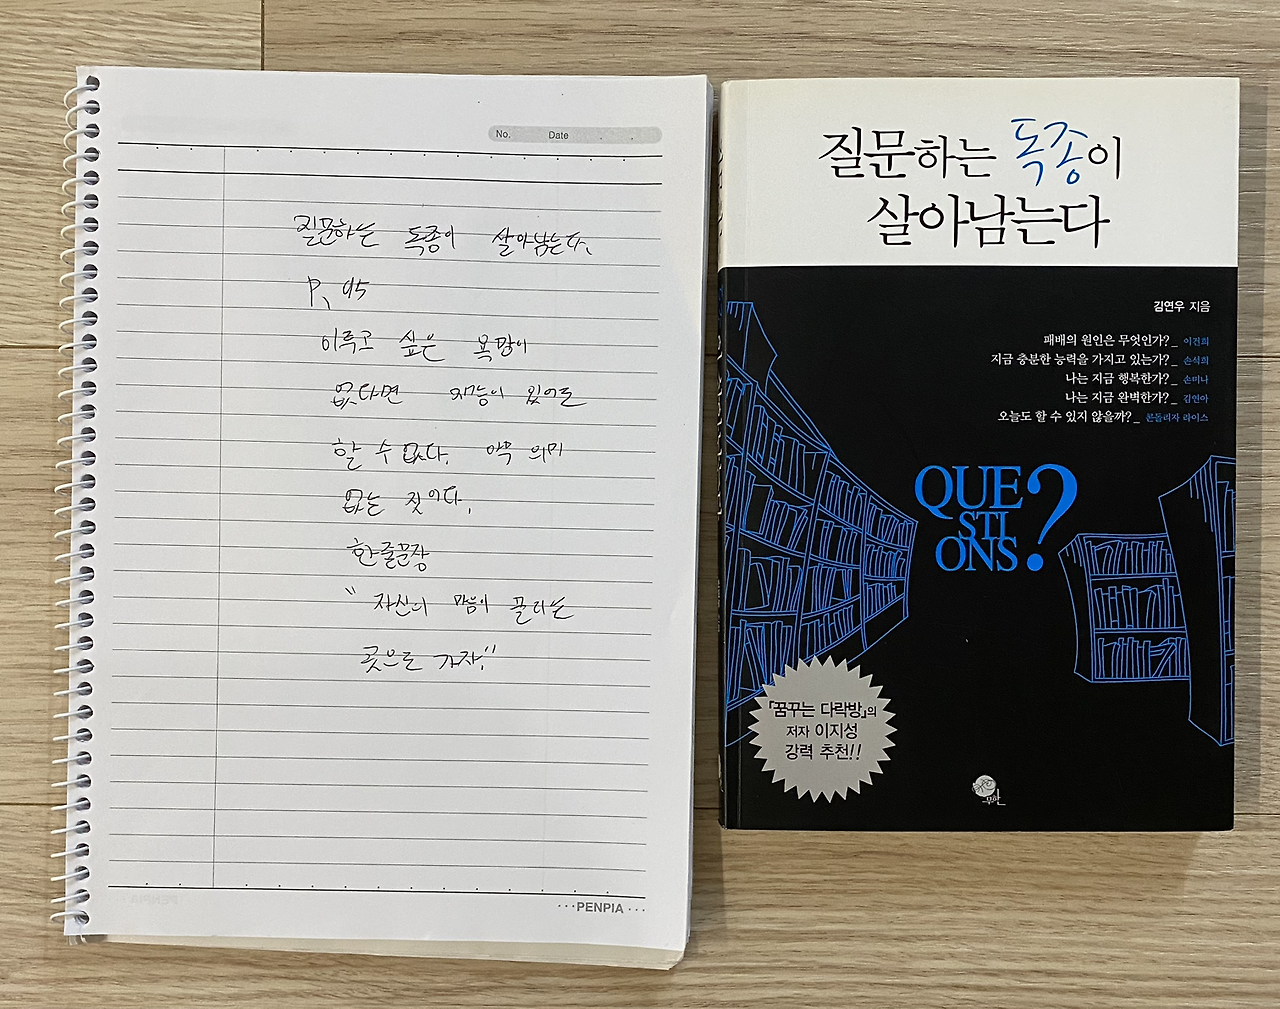 No. Date
질문하는 독종이 살아남는다.
P. 95
이루고 싶은 욕망이
없다면 재능이 있어도
할 수 없다. 아무 의미
없는 짓이다.
한줄문장
"자신의 마음이 끌리는
곳으로 가자."
···PENPIA···
질문하는 독종이
살아남는다
김연우 지음
패배의 원인은 무엇인가?_ 이건희
지금 충분한 능력을 가지고 있는가?_ 손석희
나는 지금 행복한가?_ 손미나
나는 지금 완벽한가?_ 김연아
오늘도 할 수 있지 않을까?_ 콘돌리자 라이스
QUE
STI
ONS?
『꿈꾸는 다락방』의
저자 이지성
강력 추천!!
무한